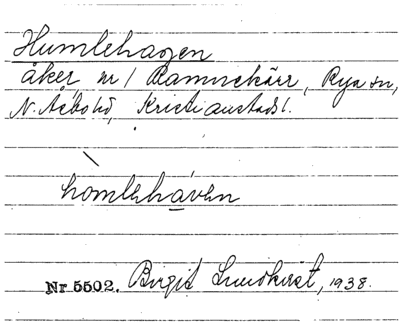 Humlehagen
åker nr 1 Ramnekärr, Rya sn,
N. Åsbo hd, Kristianstads l.
homlehaven
Nr 5502. Birgit Lundkvist, 1938.